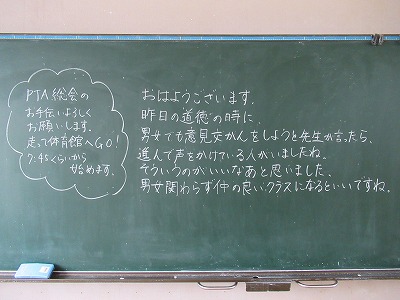 PTA総会の
お手伝いよろしく
お願いします。
走って体育館へGO!
7:45くらいから
始めます。
おはようございます。
昨日の道徳の時に、
男女でも意見交かんをしようと先生が言ったら、
進んで声をかけている人がいましたね。
そういうのがいいなあと思いました。
男女関わらず仲の良いクラスになるといいですね。